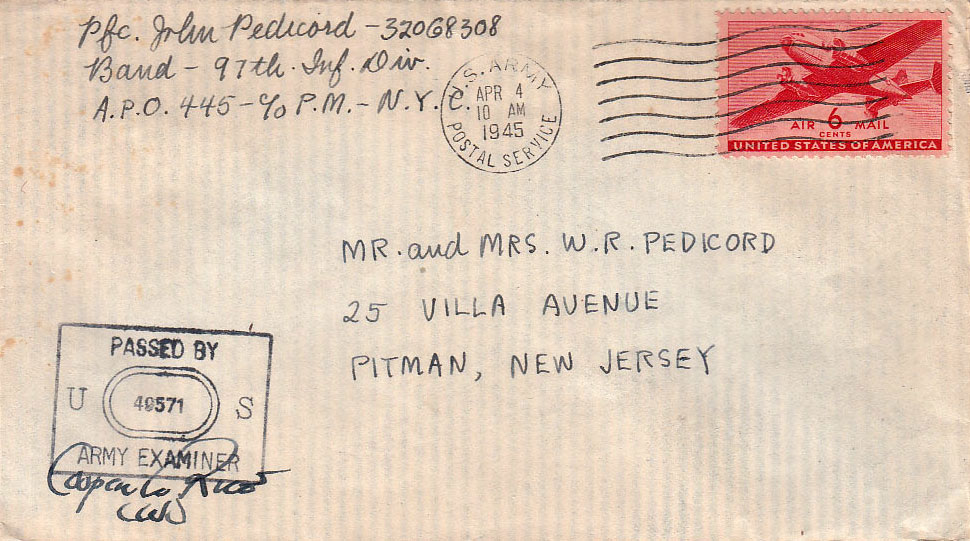 Pfc. John Pedicord - 32068308
Band - 97th. Inf. Div.
A.P.O. 445 - c/o P.M. - N.Y.C.
U.S. ARMY
APR 4
10 AM
1945
POSTAL SERVICE
AIR 6 MAIL
CENTS
UNITED STATES OF AMERICA
MR. and MRS. W. R. PEDICORD
25 VILLA AVENUE
PITMAN, NEW JERSEY
PASSED BY
U 49571 S
ARMY EXAMINER